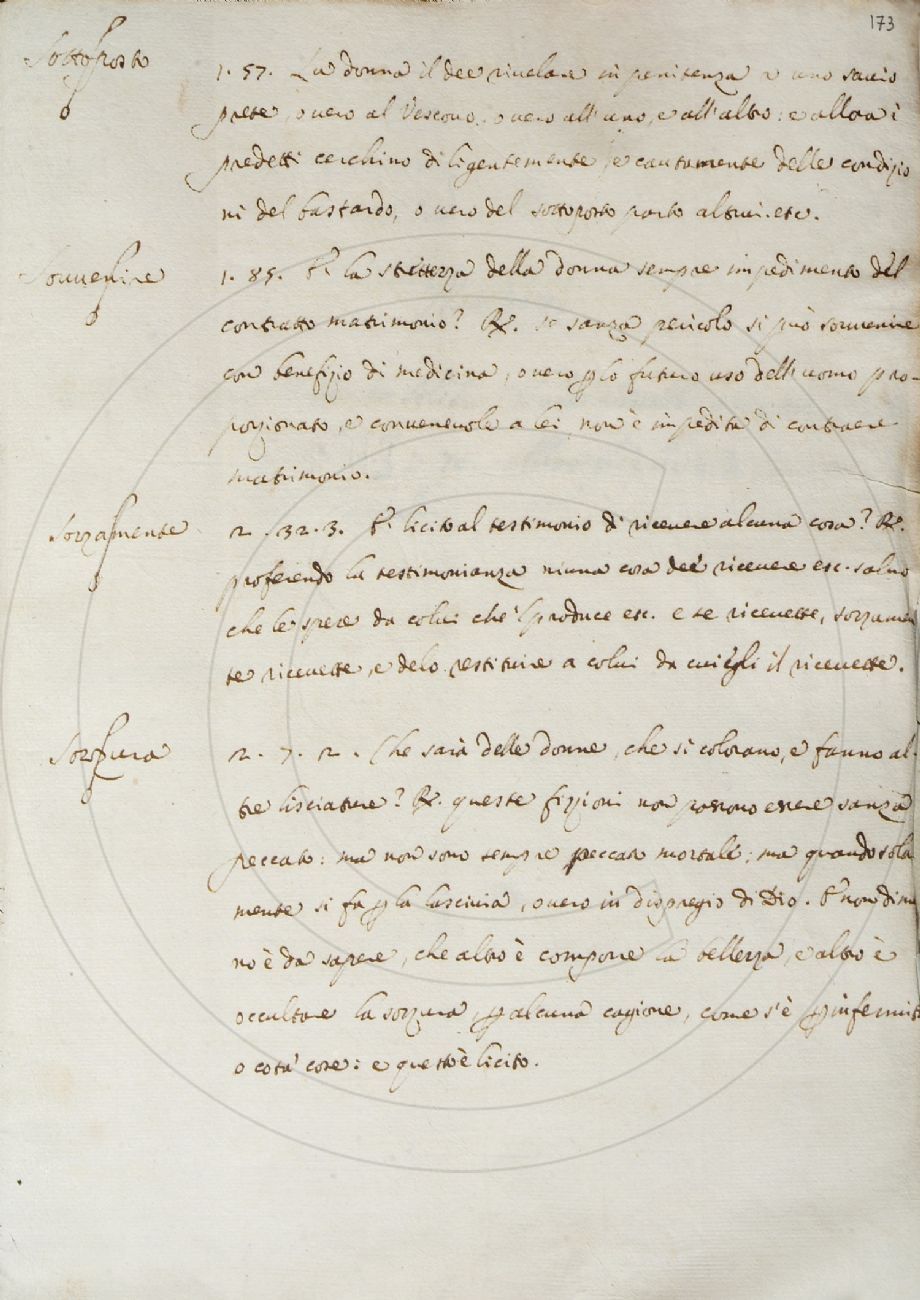 173
Sottoposto
1. 57. La donna il dee rivelare in penitenza a uno savio
prete, o vero al Vescovo, o vero all'uno, e all'altro: e allora i
predetti cerchino diligentemente, e cautamente delle condizio
ni del bastardo, o vero del sottoposto parto altrui. etc.
Sovvenire
1. 85. È la strettezza della donna sempre impedimento del
contratto matrimonio? R. se sanza pericolo si può sovvenire
con benefizio di medicina, o vero p lo futuro uso dell'uomo pro-
porzionato, e convenevole a lei, non è impedita di contraere
matrimonio.
Sozzamente
2. 32. 3. È licito al testimonio di ricevere alcuna cosa? R.
proferendo la testimonianza niuna cosa dee ricevere etc. salvo
che le spese da colui che 'l produce etc. e se ricevette, sozzamen
te ricevette, e delo restituire a colui da cui egli il ricevette.
Sozzura
2. 7. 2. Che sarà delle donne, che si colorano, e fanno al-
tre lisciature? R. queste fizzioni non possono essere sanza
peccato: ma non sono sempre peccato mortale; ma quando sola
mente si fa p la lascivia, o vero in dispregio di Dio. E nondime
no è da sapere, che altro è componere la bellezza, e altro è
occultare la sozzura, p alcuna cagione, come s'è p infermit
o cota' cose: e questo è licito.